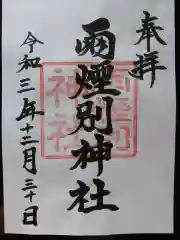 奉拝
雨煙別神社
令和三年十二月三十日